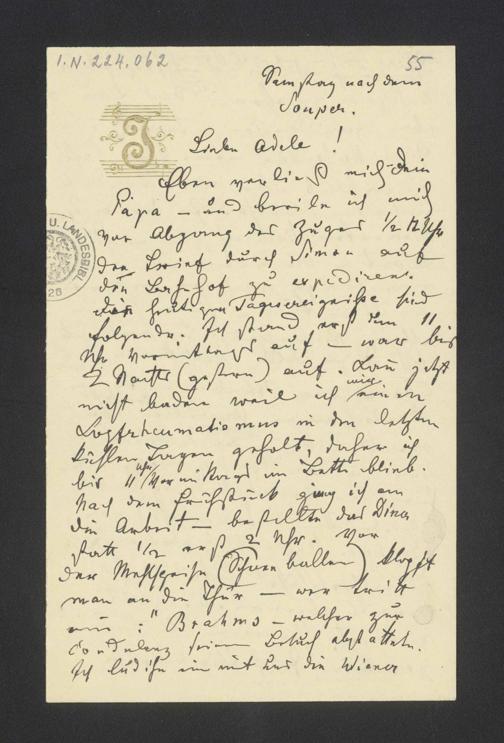 I.N. 224.062
55
Samstag nach dem
Souper.
J
Liebe Adele!
U. LANDESBIBL
26
Eben verließ mich Dein
Papa – und beeile ich mich
vor Abgang des Zuges 1/2 12 Uhr
den Brief durch Simon auf
den Bahnhof zu expediren.
Die heutigen Tagesereignisse sind
folgende. Ich stand erst um 11
Uhr Vormittags auf – war bis
2 Nachts (gestern) auf. Kann jetzt
nicht baden weil ich mir einen
Kopfrheumatismus in den letzten
kühlen Tagen geholt, daher ich
bis 11 Uhr Vormittags im Bette blieb.
Nach dem Frühstück ging ich an
die Arbeit – bestellte das Diner
statt 1/2 erst 2 Uhr. Vor
der Mehlspeise (Schneeballen) klopft
man an die Thür – wer tritt
ein: "Brahms – welcher zur
Condolenz seinen Besuch abstattete.
Ich lud ihn ein mit uns die Wiener